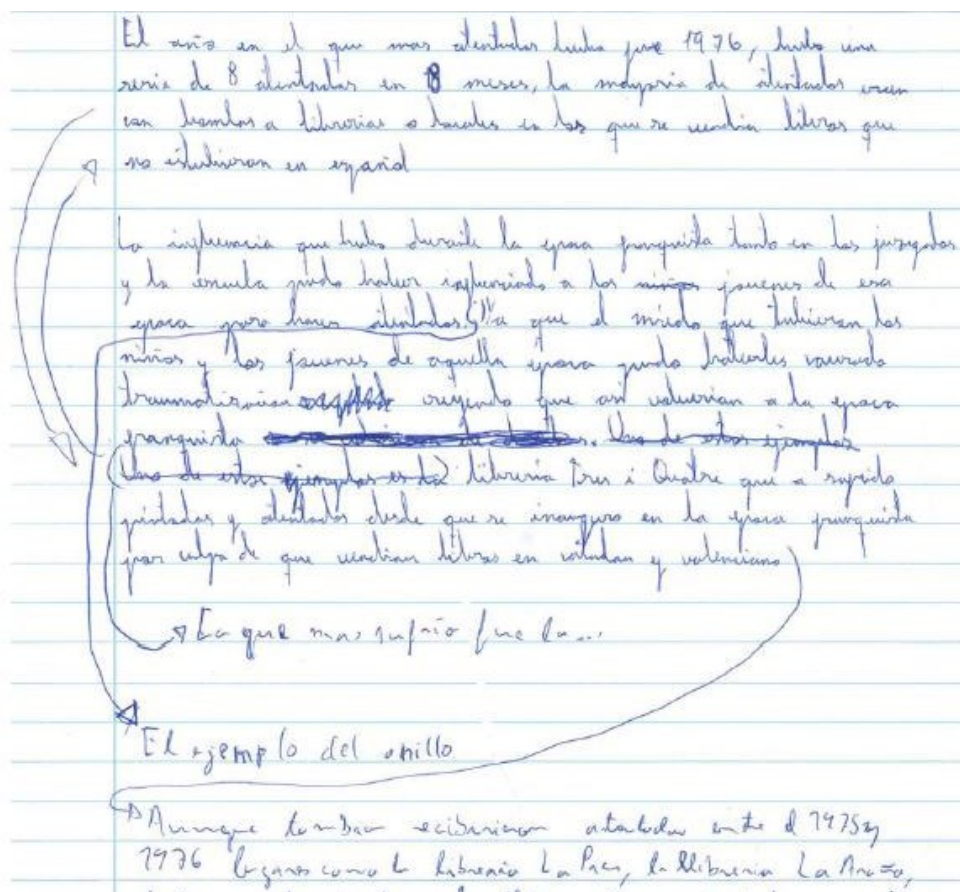 El año en el que mas atentados hubo fue 1976, hubo una
serie de 8 atentados en 8 meses, la mayoria de atentados eran
con bombas a librerias o locales en los que se vendian libros que
no estubieran en español
La influencia que hubo durante la epoca franquista tanto en los juzgados
y la escuela pudo haber influenciado a los niños jovenes de esa
epoca para hacer atentados. Ya que el miedo que tubieran los
niños y los jovenes de aquella epoca pudo haberles causado
creyendo que asi volverian a la epoca
franquista Uno de estos ejemplos
Uno de estos ejemplos es la libreria Tres i Quatre que a sufrido
pintadas y atentados desde que se inauguro en la epoca franquista
por culpa de que vendian libros en catalan y valenciano
La que mas sufrio fue la...
El ejemplo del anillo
Aunque tambien atentados entre el 1975 y
1976 lugares como la libreria La Pau, la llibreria La Araña,